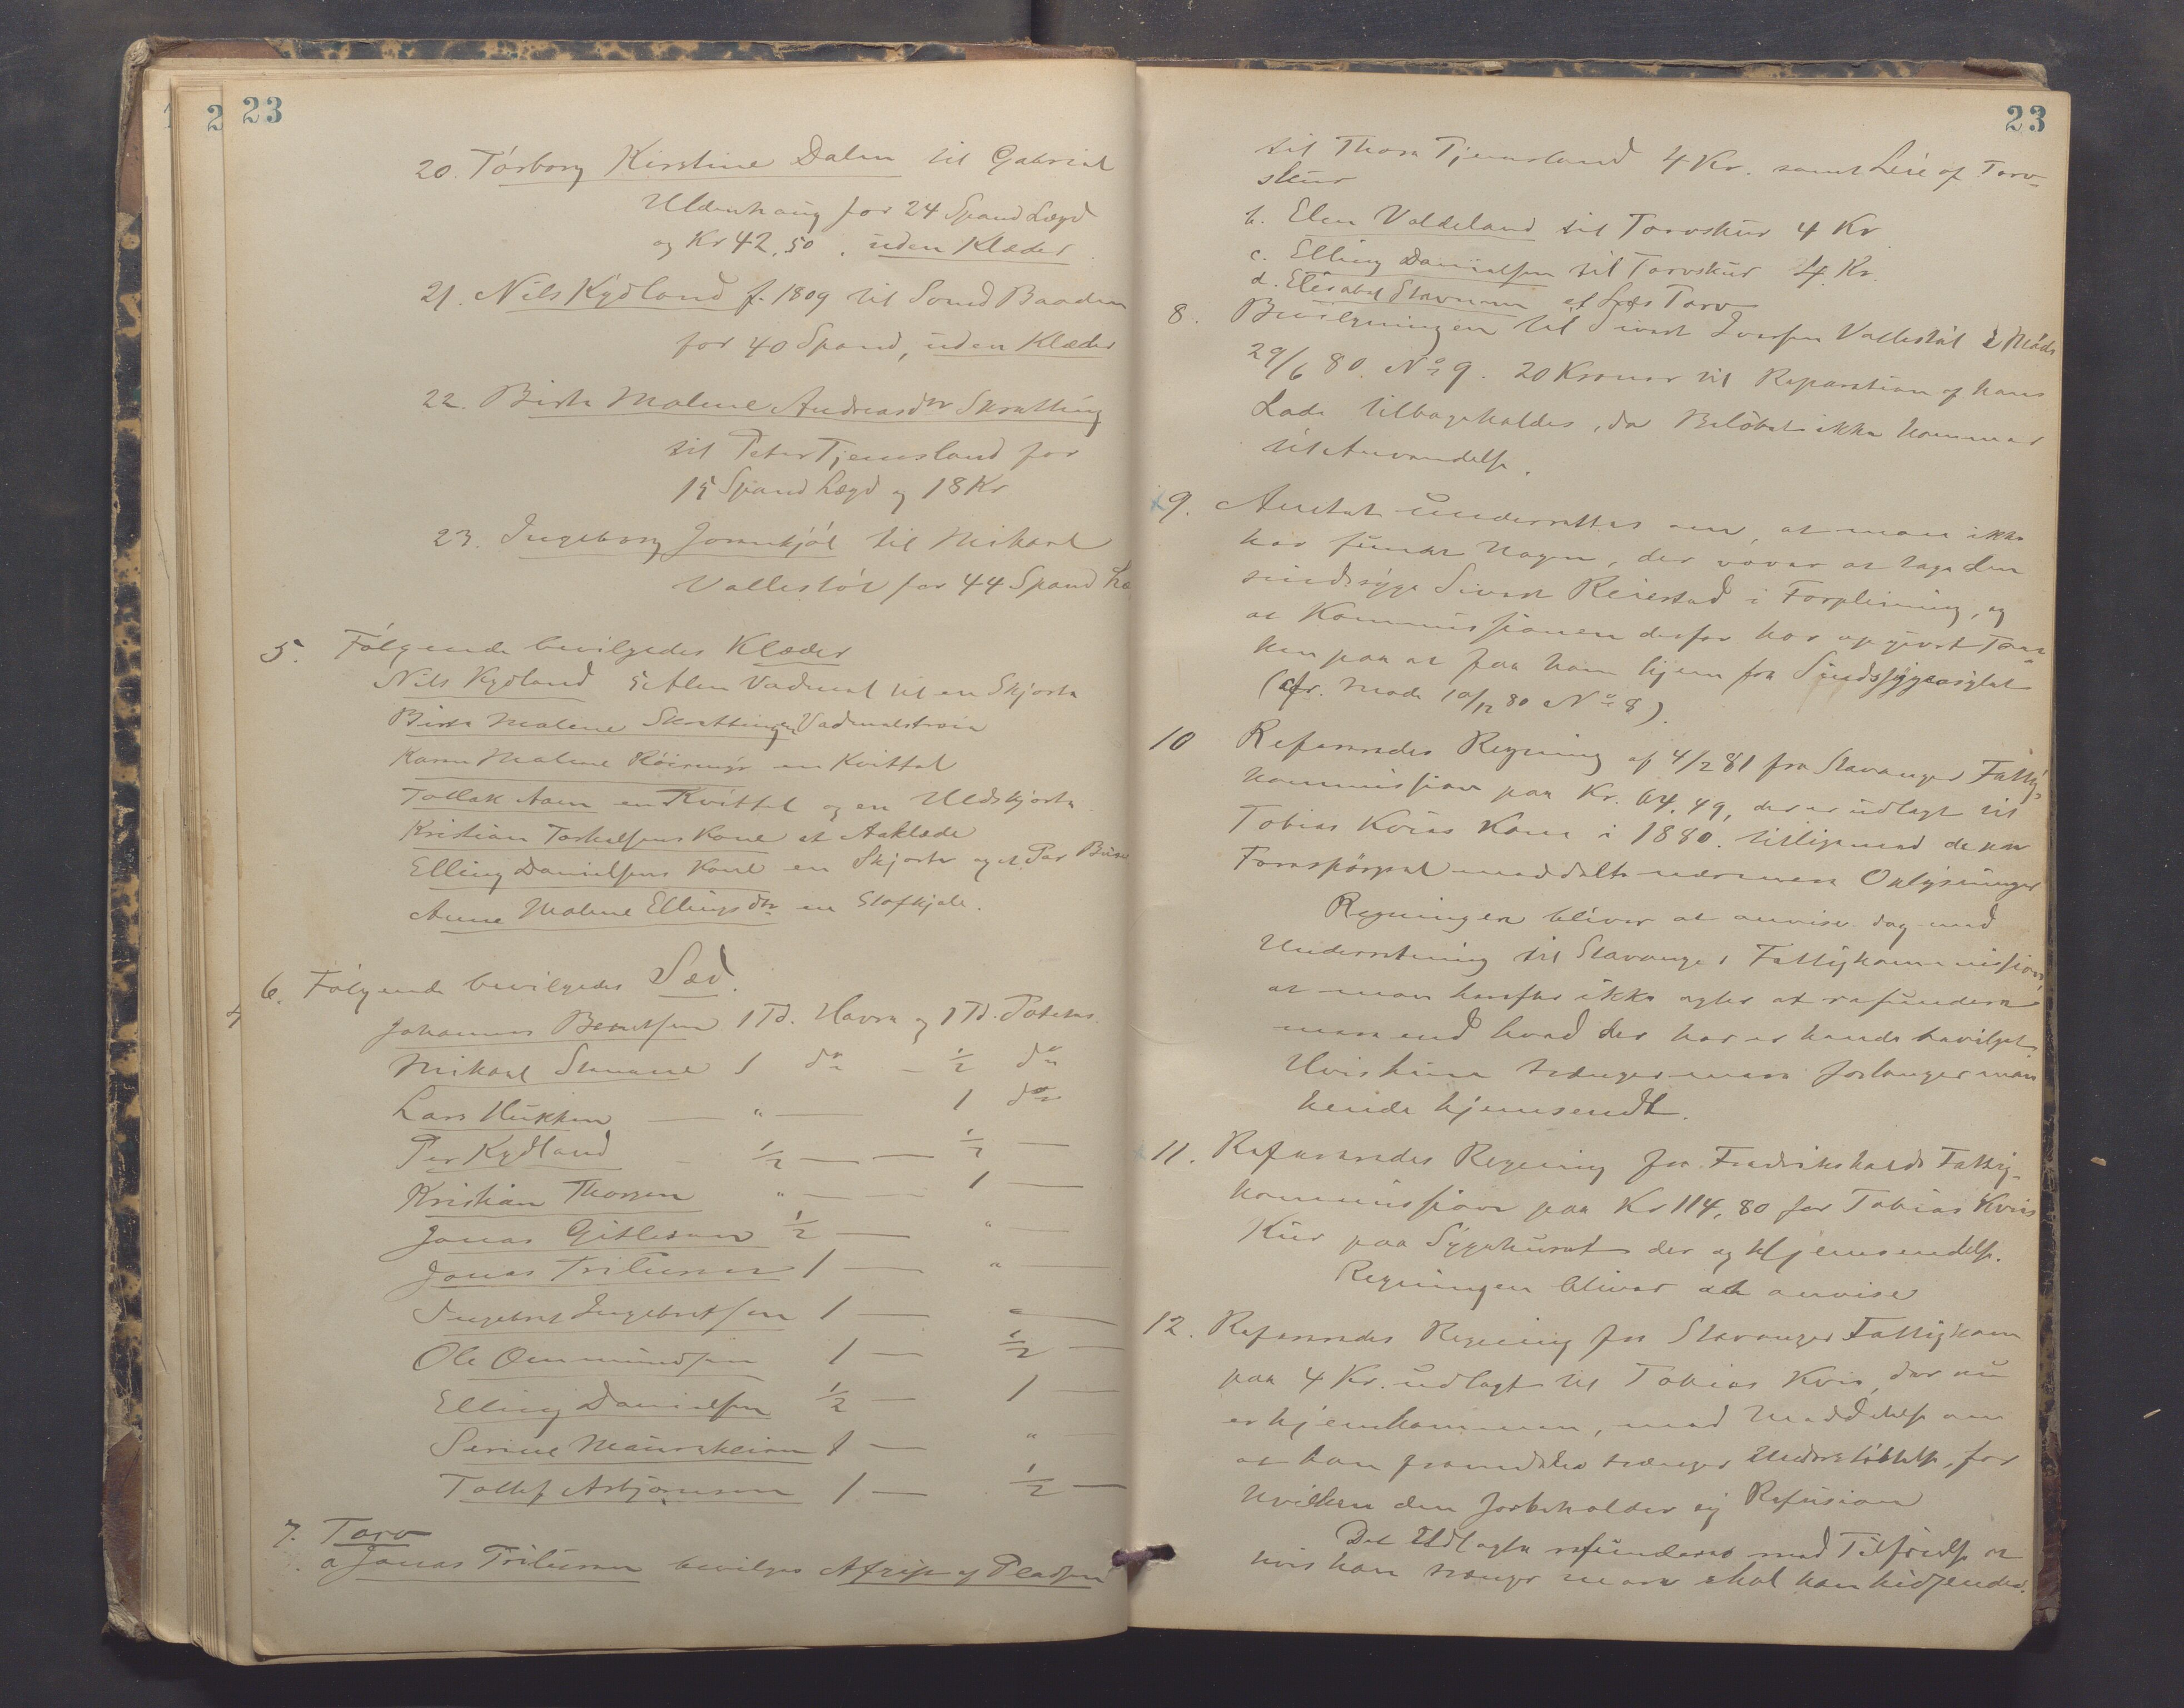 23
20. Torborg Kirstine Dalen til Gabriel
Uldenhaug for 24 Spand Lægd
og Kr 42,50. uden Klæder.
21. Nils Kydland f. 1809 til Baadsen
for 40 Spand, uden Klæder
22. Birte Malene Andreasdtr Skratting
til Peter Tjemsland for
15 Spand Lægd og 18 Kr
23. Ingeborg til Mikael
Vallestöt for 44 Spand Læ
5. Følgende bevilgedes Klæder
Nils Kydland 5 Alen Vadmel til en Skjorte
Birte Malene Skrattingen Vadmelströie
Karen Malene en Kvittel
Tollak Aaen en Kvittel og en Uldskjorte
Kristian Torkelsens Kone et Aaklæde
Elling Danielsens Kone en Skjorte og et Par
Anne Malene Ellingsdtr en Stofkjole.
6. Følgende bevilgedes Sæd.
Johannes Berntsen 1 Td. Havre og 1 Td. Potetes.
Mikael Stavnene 1 do – ½ do
Lars Hukken — " — 1 do
Per Kydland – ½ — — ½ —
Kristian Thorsen " — 1 —
Jonas Gitlesen ½ — " —
Jonas 1 — " —
Ingebret Ingebretsen 1 — " —
Ole Ommundsen 1 — ½ —
Elling Danielsen ½ — 1 —
Serine 1 — " —
Tollef Asbjørnsen 1 — ½ —
7. Torv
a Jonas bevilges Afgift af Pladsen
23
til Thore Tjemsland 4 Kr. samt Leie af Torv-
skur
b. Elen Valdeland til Torvskur 4 Kr
c. Elling Danielsen til Torvskur 4 Kr.
d. Elisabet Stavnene et Læs Torv
8. Bevilgningen til Sivert Iversen Vallestöt i Möde
29/6 80. No 9. 20 Kroner til Reparation af hans
Lade tilbageholdes, da Belöbet ikke kommer
til Anvendelse.
9. Amtet underrettes om, at man ikke
har fundet Nogen, der vover at tage den
sindssyge Sivert Reiestad i Forpleining, og
at Kommissionen derfor har opgivet Tan-
ken paa at faa ham hjem fra Sindssygeasylet
(cfr. Möde 10/12 80 No 8).
10 Refereredes Regning af 4/2 81 fra Stavanger Fattig-
kommission paa Kr. 64.49, der er udlagt til
Tobias Kvias Kone i 1880. tilligemed de paa
Forespörgsel meddelte nærmere Oplysninger
Regningen bliver at anvise dog med
Underretning til Stavanger Fattigkommission,
at man herefter ikke agter at refundere
mere end hvad der her er hende bevilget.
Hvis hun trænger mere forlanger man
hende hjemsendt.
11. Refereredes Regning fra Fredrikshalds Fattig-
kommission paa Kr 114,80 for Tobias Kvias
Kur paa Sygehuset der og Hjemsendelse.
Regningen bliver at anvise
12. Refereredes Regning fra Stavanger Fattigkom
paa 4 Kr. udlagt til Tobias Kvia, der nu
er hjemkommen, med Meddelelse om
at han fremdeles trænger Understöttelse, for
hvilken den forbeholder sig Refusion
Det Udlagte refunderes med Tilföielse at
hvis han trænger mere skal han hidsendes.